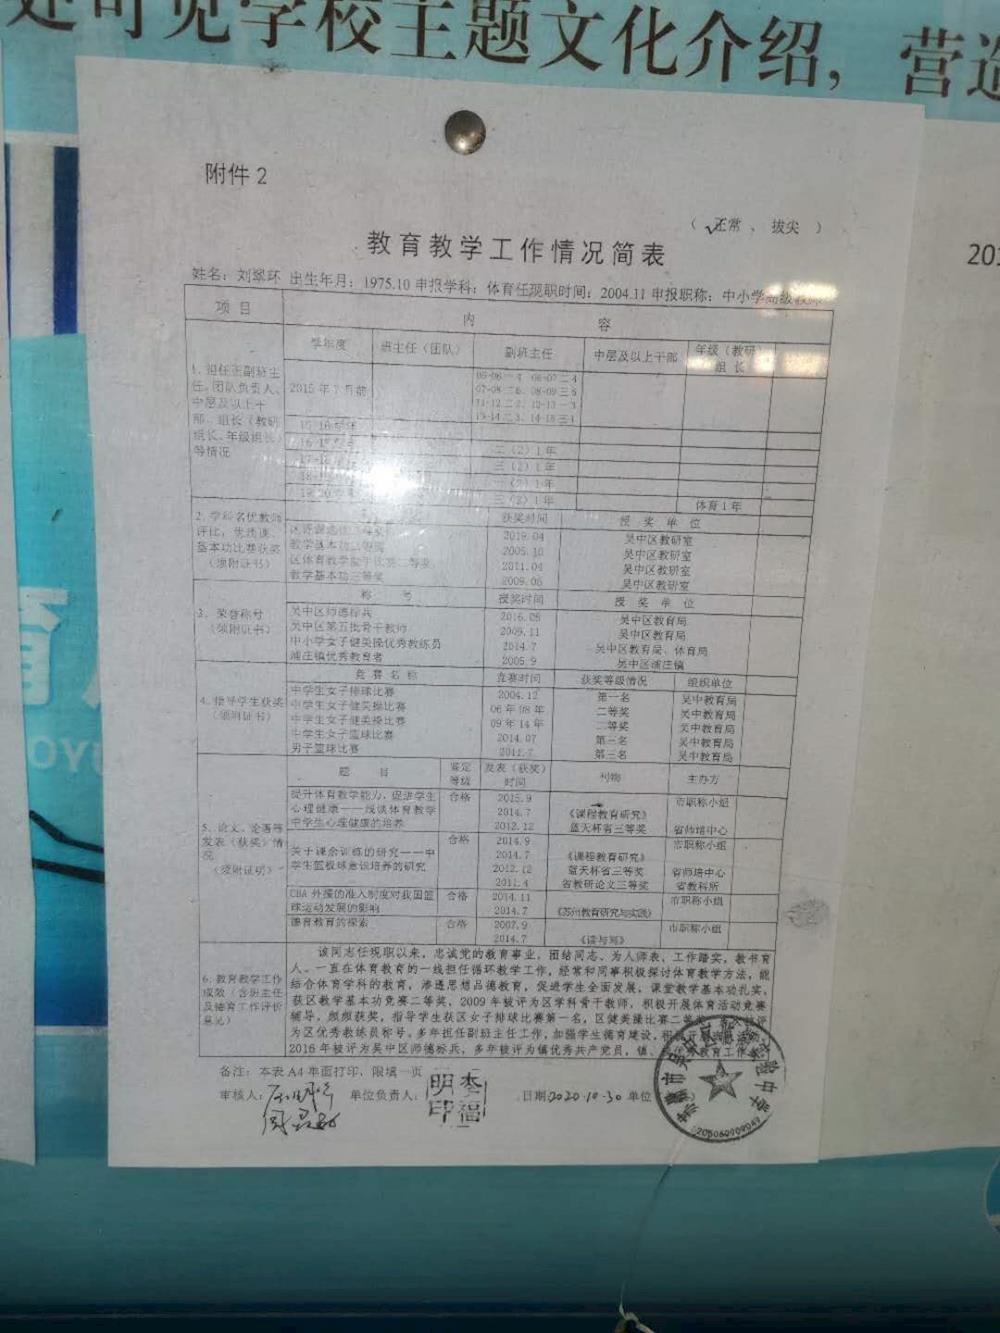 处可见学校主题文化介绍，营造
附件 2
（√正常 、 拔尖 ）
教育教学工作情况简表
姓名：刘翠环 出生年月：1975.10 申报学科：体育任现职时间：2004.11 申报职称：中小学高级教师
项 目 内 容
学年度 班主任（团队） 副班主任 中层及以上干部 年级（教研）组 长
1、担任正副班主任、团队负责人、中层及以上干部、组长（教研组长、年级组长）等情况
2015 年 7 月前
07-08 二6、08-09 三6
15-16 学年
二（2）1 年
三（2）1 年
一（2）1 年
三（2）1 年 体育 1 年
2、学科名优教师评比、优质课、基本功比赛获奖（须附证书）
获奖时间 授 奖 单 位
2019.04 吴中区教研室
教学基本功二等奖 2005.10 吴中区教研室
区体育教学能手比赛二等奖 2011.04 吴中区教研室
教学基本功三等奖 2009.06 吴中区教研室
3、荣誉称号（须附证书）
称 号 授奖时间 授 奖 单 位
吴中区师德标兵 2016.08 吴中区教育局
吴中区第五批骨干教师 2009.11 吴中区教育局
中小学女子健美操优秀教练员 2014.7 吴中区教育局、体育局
浦庄镇优秀教育者 2005.9 吴中区浦庄镇
4、指导学生获奖（须附证书）
竞 赛 名 称 竞赛时间 获奖等级情况 组织单位
中学生女子排球比赛 2004.12 第一名 吴中教育局
中学生女子健美操比赛 06 年 08 年 二等奖 吴中教育局
中学生女子健美操比赛 09 年 14 年 二等奖 吴中教育局
中学生女子篮球比赛 2014.07 第三名 吴中教育局
男子篮球比赛 2011.7 第三名 吴中教育局
5、论文、论著等发表（获奖）情况（须附证明）
题 目 鉴定等级 发表（获奖）时间 刊物 主办方
提升体育教学能力、促进学生 合格 2015.9 市职称小组
心理健康——浅谈体育教学 2014.7 《课程教育研究》
中学生心理健康的培养 2012.12 蓝天杯省三等奖 省师培中心
合格 2014.9 市职称小组
关于课余训练的研究——中 2014.7 《课程教育研究》
学生篮板球意识培养的研究 2012.12 蓝天杯省三等奖 省师培中心
2011.4 省教研论文三等奖 省教科所
CBA 外援的准入制度对我国篮 合格 2014.11 市职称小组
球运动发展的影响 2014.7 《苏州教育研究与实践》
德育教育的探索 合格 2007.9 市职称小组
2014.7 《读与写》
6、教育教学工作成效（含班主任及德育工作评价意见）
该同志任现职以来，忠诚党的教育事业，团结同志，为人师表，工作踏实，教书育
人，一直在体育教育的一线担任循环教学工作，经常和同事积极探讨体育教学方法，能
结合体育学科的教育，渗透思想品德教育，促进学生全面发展，课堂教学基本功扎实，
获区教学基本功竞赛二等奖，2009 年被评为区学科骨干教师，积极开展体育活动竞赛
辅导，频频获奖，指导学生获区女子排球比赛第一名，区健美操比赛二等奖
为区优秀教练员称号。多年担任副班主任工作，加强学生德育建设，
2016 年被评为吴中区师德标兵，多年被评为镇优秀共产党员，镇、
备注：本表 A4 单面打印，限填一页
审核人： 单位负责人： 李福明印 日期：2020.10.30 单位